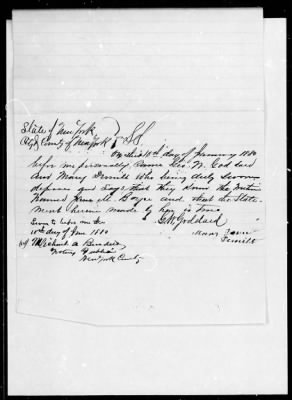 State of New York
City & County of New York } SS
On this 10th day of January 1880
before me personally Came Geo. W. Goddard
and Mary Terrill Who being duly sworn
deposes and Says that they know the within
Named M. Boyce and that the State-
ment herein made by her is true
Sworn to before me this G W Goddard
10th day of Jan 1880 Mary Jane
Terrill
Notary Public
New York County